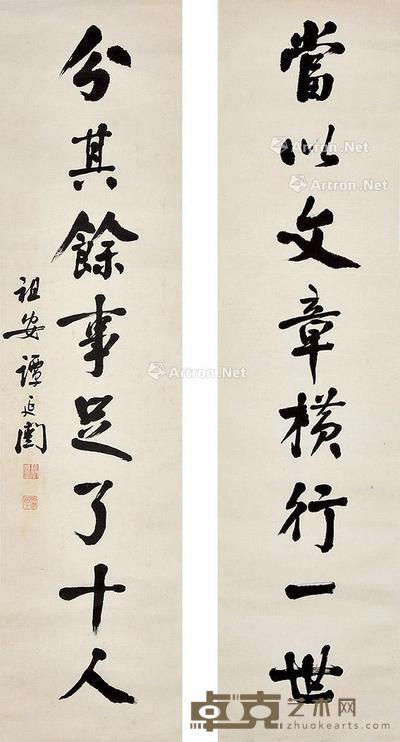 當以文章橫行一世
分其餘事足了十人
祖安譚延闓
Artron.Net
Artron.Net
Artron.Net
Artron.Net
卓克艺术网
zhuokearts.com